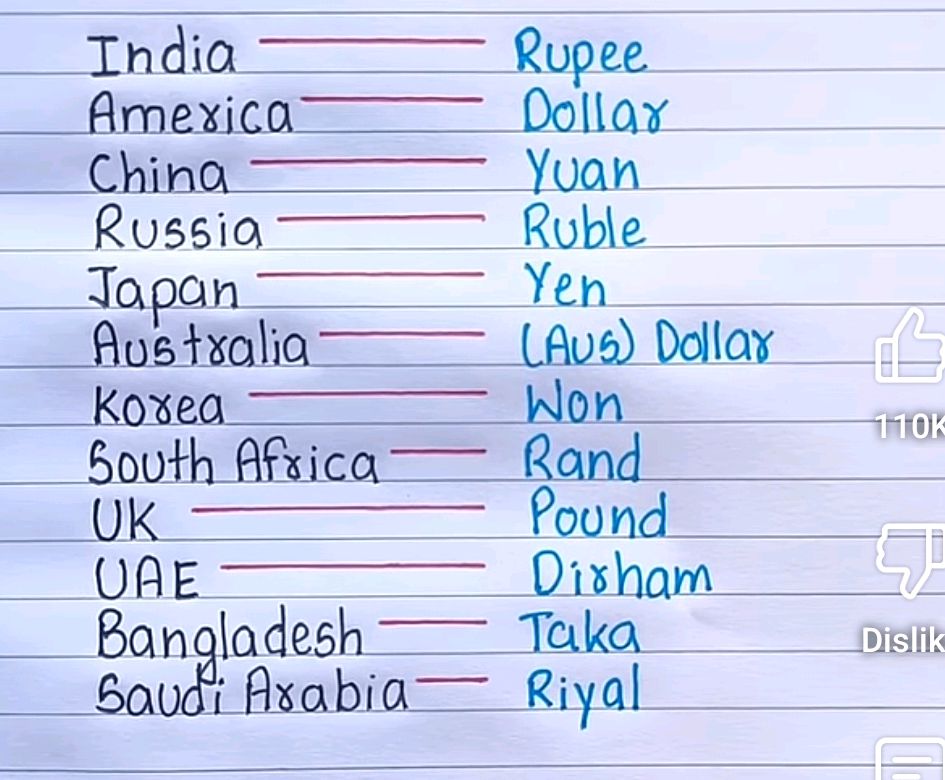 India Rupee
America Dollar
China Yuan
Russia Ruble
Japan Yen
Australia (Aus) Dollar
Korea Won
110K
South Africa Rand
UK Pound
UAE Dirham
Bangladesh Taka
Dislik
Saudi Arabia Riyal